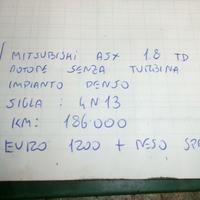 MITSUBISHI ASX 1.8 TD
MOTORE SENZA TURBINA
IMPIANTO DENSO
SIGLA : 4N13
KM: 186.000
EURO 1200 + RESO